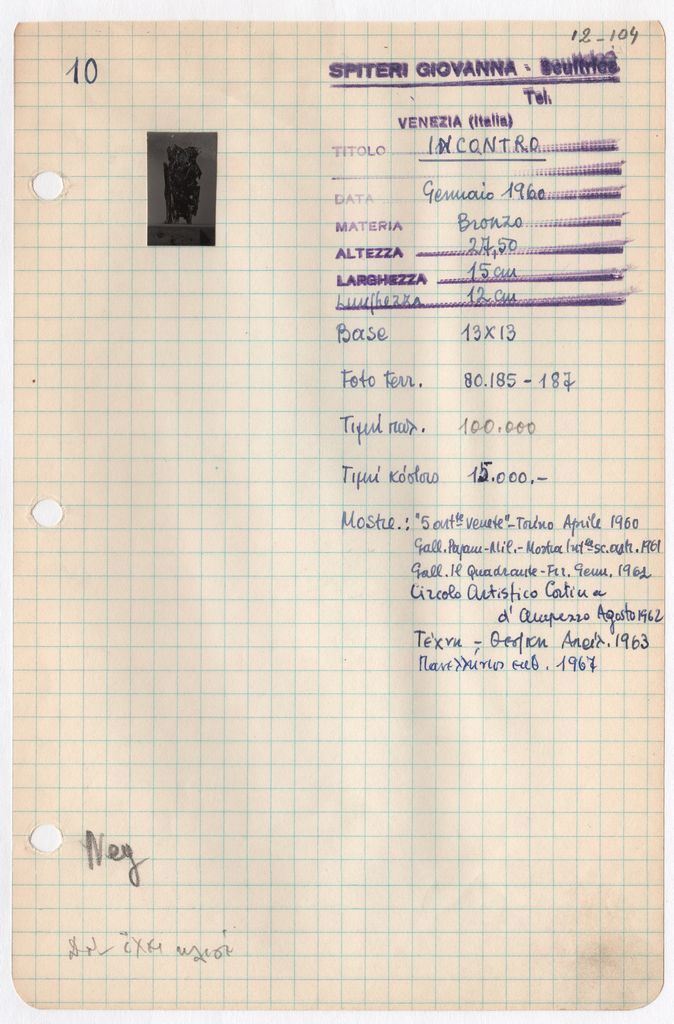 12-104
10
SPITERI GIOVANNA - Scultrice
Tel.
VENEZIA (Italia)
TITOLO INCONTRO
DATA Gennaio 1960
MATERIA Bronzo
ALTEZZA 27,50
LARGHEZZA 15 cm
Lunghezza 12 cm
Base 13X13
Foto Ferr. 80.185 - 187
Τιμή παλ. 100.000
Τιμή κόστους 15.000.-
Mostre.: "5 artte Venete" - Torino Aprile 1960
Gall. Pagani - Mil. - Mostra Intle sc. astr. 1961
Gall. Il Quadrante - Fir. Genn. 1962
Circolo Artistico Cortina
d'Ampezzo Agosto 1962
Τέχνη - Θεσ/κη Απρίλ. 1963
Πανελλήνιος εκθ. 1967
Neg
Δεν έχει